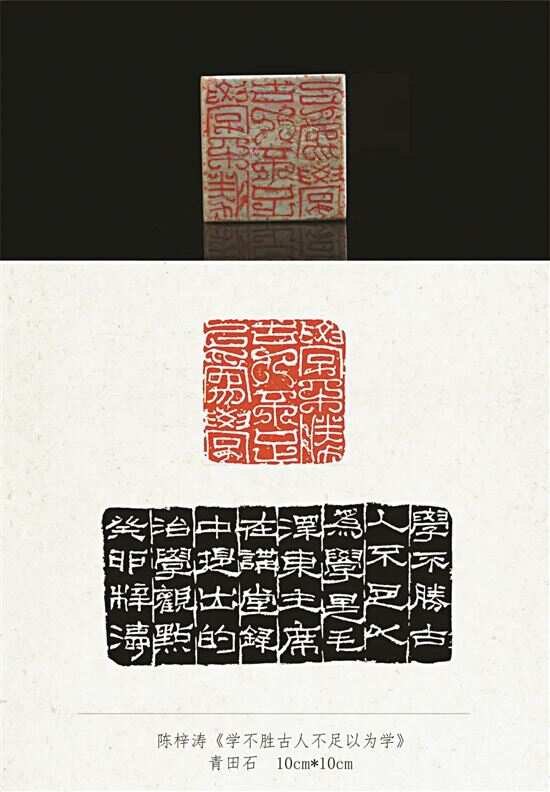 學不勝
古人不足
以為學
學不勝古
人不足以
為學是毛
澤東主席
在講堂錄
中提出的
治學觀點
癸卯梓濤
陈梓涛《学不胜古人不足以为学》
青田石 10cm*10cm